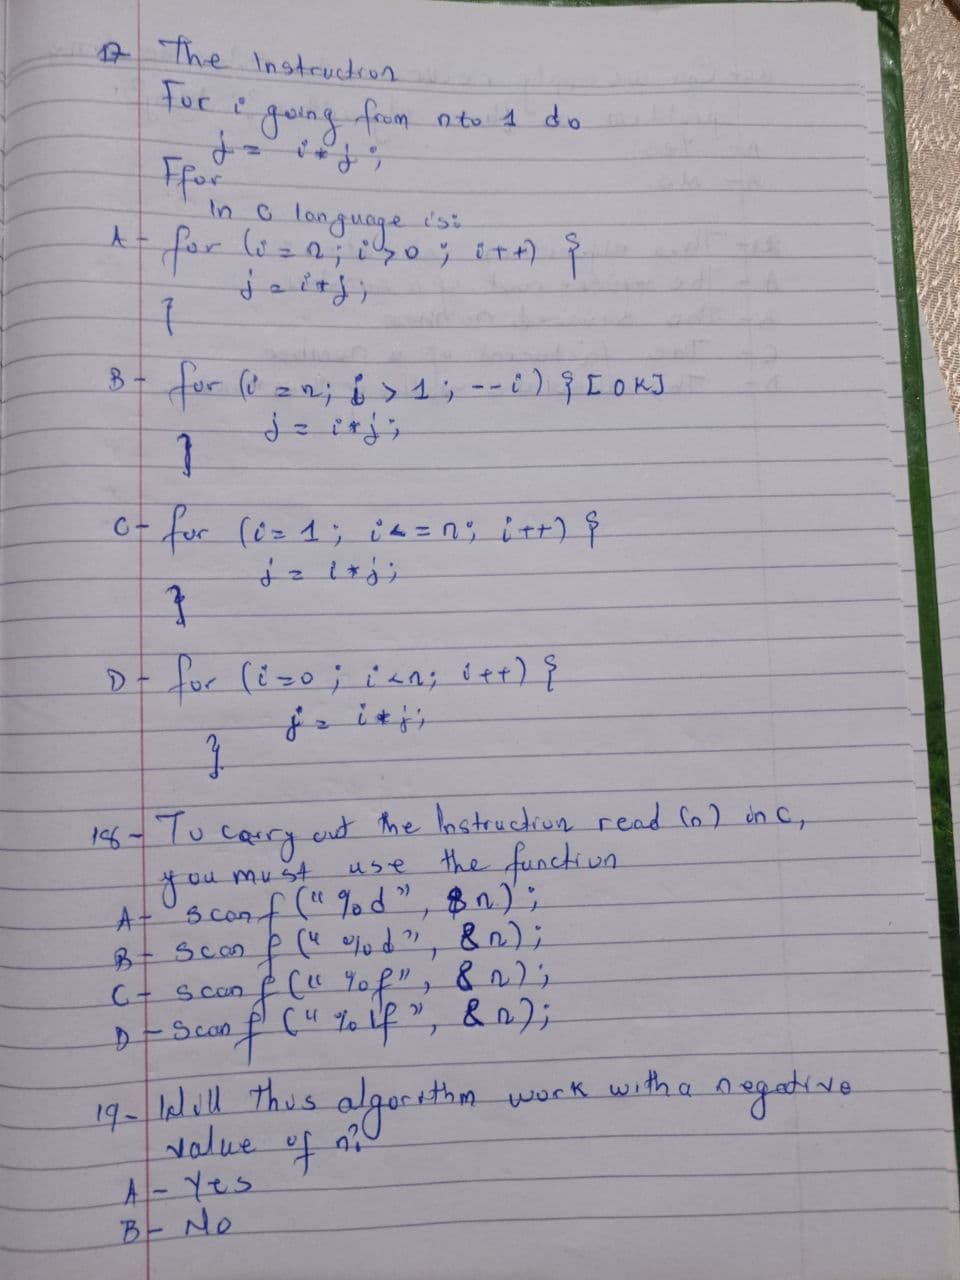 17 The Instruction
For i going from n to 1 do
j = i * j ;
Ffor
In C language is:
A - for (i = n ; i > 0 ; i++) {
j = i * j ;
}
B - for (i = n; i > 1 ; --i) { [OK]
j = i * j ;
}
C - for (i = 1 ; i <= n ; i++) {
j = i * j ;
}
D - for (i = 0 ; i < n ; i++) {
j = i * j ;
}
18 - To carry out the Instruction read (n) in C,
you must use the function
A - scanf ("%d", &n) ;
B - scanf ("%d", &n) ;
C - scanf ("%f", &n) ;
D - scanf ("%lf", &n) ;
19 - Will thus algorithm work with a negative
value of n?
A - Yes
B - No